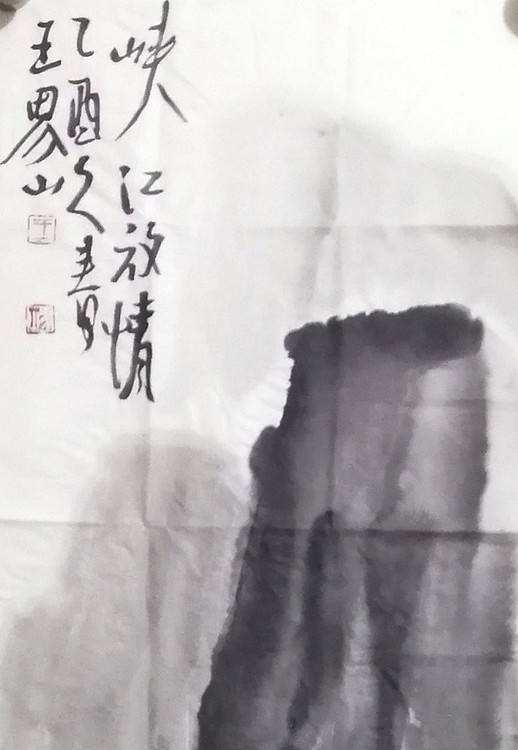 峡江放情
乙酉之春月
王界山